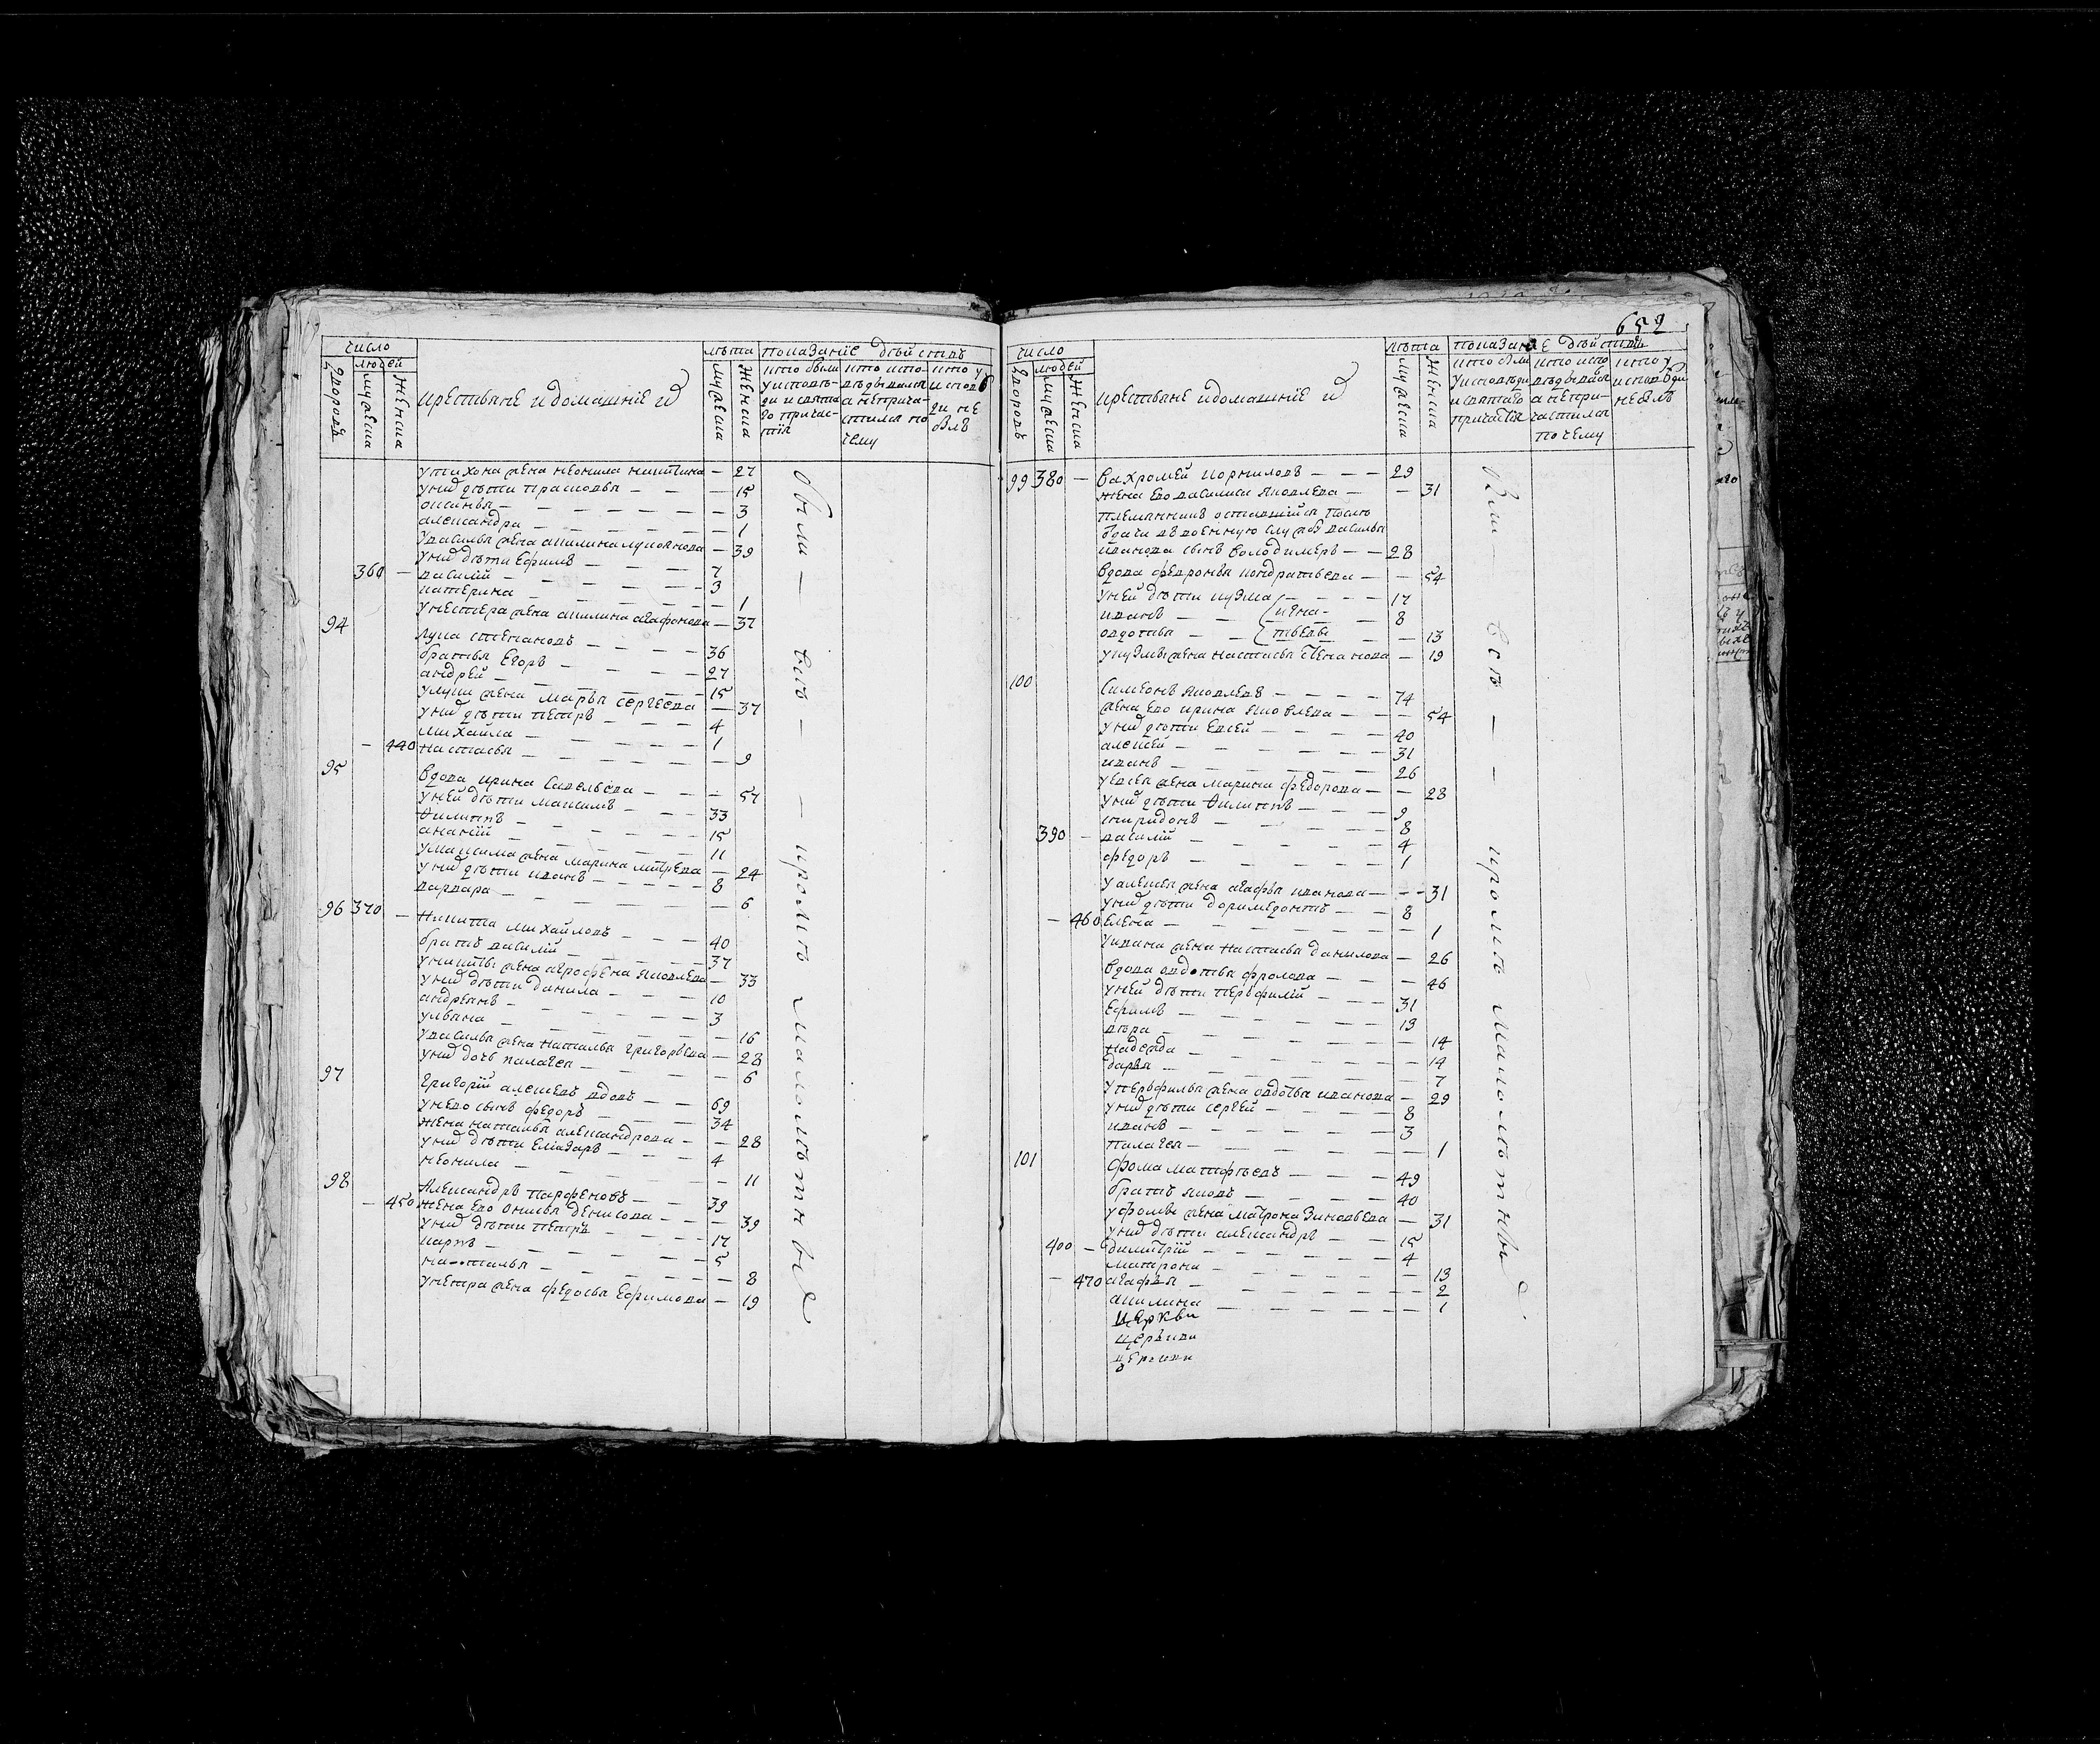 число
людей
дворовъ
мужеска
женска
крестьяне и домашніе ихъ
лѣта
мужеска
женска
показаніе дѣйствъ
кто были у исповѣди и святаго причастія
кто исповѣдывался а не причастился по чему
кто у исповѣди не былъ
у тихона жена неонила никитина — 27
у нихъ дѣти прасковья — — — 15
оксинья — — — — 3
александра — — — — 1
у василья жена акилина лукоянова — 39
у нихъ дѣти ефимъ — — — 7
360 — василій — — — — 3
катерина — — — — 1
у нестера жена акилина агафонова — 37
94 лука степановъ — — — 36
братья егоръ — — — 27
андрей — — — — 15
у луки жена марья сергеева — 37
у нихъ дѣти петръ — — — 4
михайла — — — — 1
— 440 настасья — — — — 9
95 вдова ирина савельева — — — 57
у ней дѣти максимъ — — — 33
филиппъ — — — — 15
ананій — — — — 11
у максима жена марина митрева — 24
у нихъ дѣти иванъ — — — 8
варвара — — — — 6
96 370 — никита михайловъ — — — 40
братъ василій — — — 37
у никиты жена агрофена яковлева — 33
у нихъ дѣти данила — — — 10
андреянъ — — — — 3
ульяна — — — — 16
у василья жена наталья григорьева — 28
у нихъ дочь палагея — — — 6
97 григорій алексеевъ вдовъ — — 69
у нево сынъ федоръ — — — 34
жена наталья александрова — — 28
у нихъ дѣти еліазаръ — — — 4
неонила — — — — 11
98 александръ парфеновъ — — 39
— 450 жена ево оксинья денисова — — 39
у нихъ дѣти петръ — — — 17
карпъ — — — — 5
наталья — — — — 8
у петра жена федосья ефимова — 19
были — всѣ — кромѣ малолѣтныхъ
652
число
людей
дворовъ
мужеска
женска
крестьяне и домашніе ихъ
лѣта
мужеска
женска
показаніе дѣйствъ
кто были у исповѣди и святаго причастія
кто исповѣдывался а не причастился по чему
кто у исповѣди не былъ
99 380 — вахромей корниловъ — — — 29
жена ево василиса яковлева — — 31
племянникъ оставшійся после
здачи въ военную службу василья
иванова сынъ володимеръ — — 28
вдова федронья кондратьева — — 54
у ней дѣти кузма — — — 17
иванъ — — — 8
овдотья — — — 13
у кузмы жена настасья — 19
100 симеонъ яковлевъ — — — 74
жена ево ирина яковлева — — 54
у нихъ дѣти евсей — — — 40
алексей — — — — 31
иванъ — — — — 26
у евсея жена марина федорова — — 28
у нихъ дѣти филиппъ — — — 9
спиридонъ — — — — 8
390 — василій — — — — 4
федоръ — — — — 1
у алексея жена агафья иванова — — 31
у нихъ дѣти доримедонтъ — — 8
— 460 елена — — — — 1
у ивана жена настасья данилова — 26
вдова овдотья фролова — — — 46
у ней дѣти перфилій — — — 31
ефимъ — — — — 13
вѣра — — — — 14
надежда — — — — 14
дарья — — — — 7
у перфилья жена овдотья иванова — 29
у нихъ дѣти сергей — — — 8
иванъ — — — — 3
палагея — — — — 1
101 фома матфѣевъ — — — 49
братъ яковъ — — — 40
у фомы жена матрона зиновьева — 31
у нихъ дѣти александръ — — 15
400 — димитрій — — — — 4
матрона — — — — 13
— 470 агафья — — — — 2
акилина — — — — 1
церкви
церькви
церкви
были — всѣ — — кромѣ малолѣтныхъ